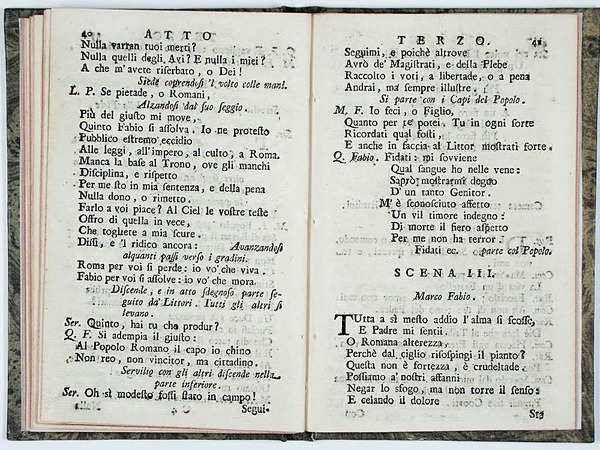 40 ATTO
Nulla varran tuoi merti?
Nulla quelli degli Avi? E nulla i miei?
A che m'avete riserbato, o Dei!
Siede coprendosi 'l volto colle mani.
L. P. Se pietade, o Romani,
Alzandosi dal suo seggio.
Più del giusto mi move,
Quinto Fabio si assolva. Io ne protesto
Pubblico estremo eccidio
Alle leggi, all'impero, al culto, a Roma.
Manca la base al Trono, ove gli manchi
Disciplina, e rispetto
Per me sto in mia sentenza, e della pena
Nulla dono, o rimetto.
Farlo a voi piace? Al Ciel le vostre teste
Offro di quella in vece,
Che togliete a mia scure.
Dissi, e 'l ridico ancora: Avanzandosi
alquanti passi verso i gradini.
Roma per voi si perde: io vo' che viva
Fabio per voi si assolve: io vo' che mora.
Discende, e in atto sdegnoso parte seguito
da' Littori. Tutti gli altri si
levano.
Ser. Quinto, hai tu che produr?
Q. F. Si adempia il giusto:
Al Popolo Romano il capo io chino
Non reo, non vincitor, ma cittadino.
Servilio con gli altri discende nella
parte inferiore.
Ser. Oh sì modesto fossi stato in campo!
C 4 Segui-
TERZO. 41
Seguimi, e poichè altrove
Avrò de' Magistrati, e della Plebe
Raccolto i voti, a libertade, o a pena
Andrai, ma sempre illustre.
Si parte con i Capi del Popolo.
M. F. Io feci, o Figlio,
Quanto per te potei. Tu in ogni sorte
Ricordati qual fosti,
E anche in faccia al Littor mostrati forte.
Q. Fabio. Fidati: mi sovviene
Qual sangue ho nelle vene:
Saprò mostrarmi degno
D' un tanto Genitor.
M' è sconosciuto affetto
Un vil timore indegno:
Di morte il fiero aspetto
Per me non ha terror.
Fidati ec. parte col Popolo.
SCENA III.
Marco Fabio.
TUtta a sì mesto addio l'alma si scosse,
E Padre mi sentii.
O Romana alterezza,
Perchè dal ciglio risospingi il pianto?
Questa non è fortezza, è crudeltade.
Possiamo a' nostri affanni
Negar lo sfogo, ma non torre il senso:
E celando il dolore